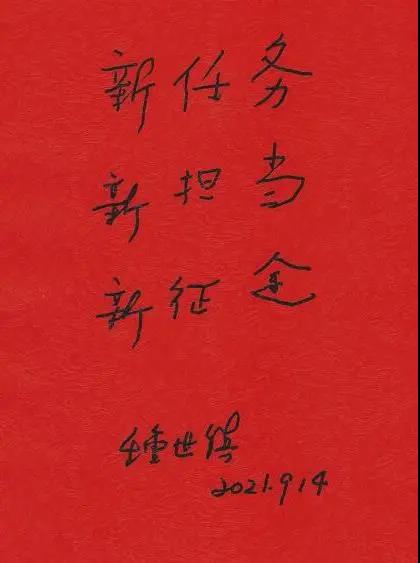 新任务
新担当
新征途
锺世镇
2021.9.14